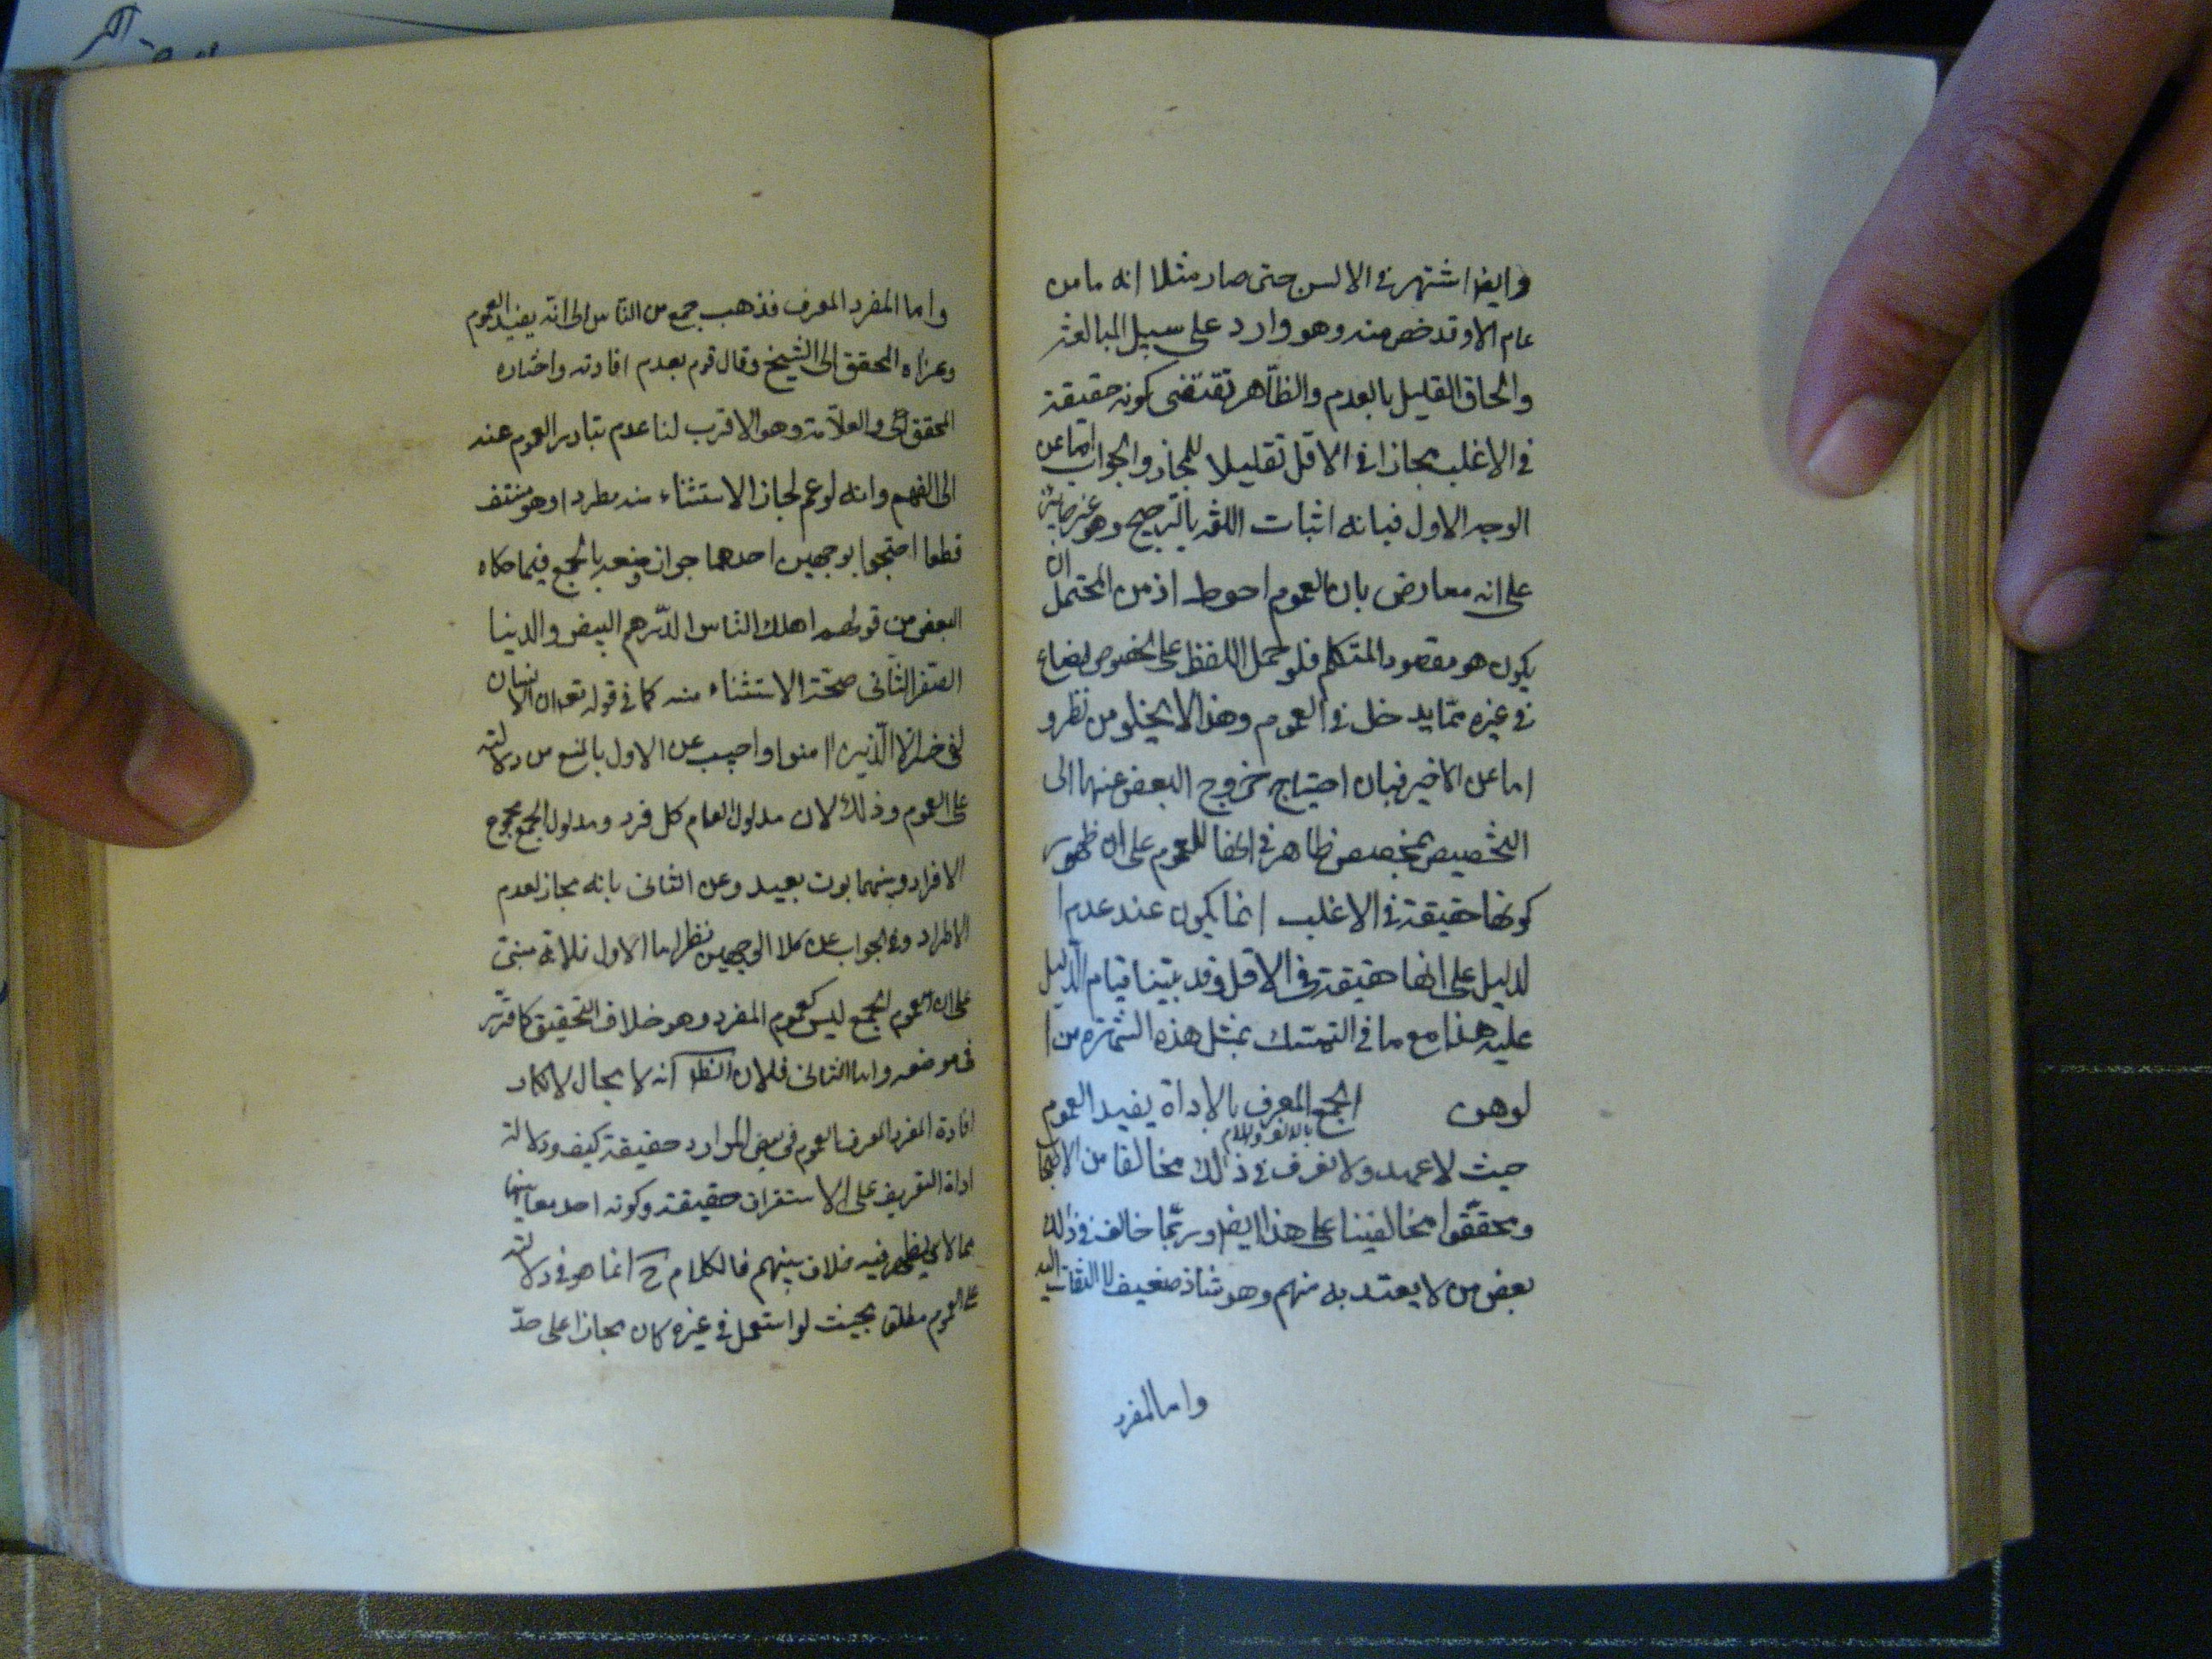 وايضا اشتهر في الالسن حتى صار مثلا انه ما من
عام الا وقد خص منه وهو وارد على سبيل المبالغة
والحاق القليل بالعدم والظاهر تقتضى كونه حقيقة
في الاغلب مجازا في الاقل تقليلا للمجاز والجواب اما عن
الوجه الاول فبانه اثبات اللغة بالترجيح وهو غير جايز
على انه معارض بان العموم احوط اذ من المحتمل ان
يكون هو مقصود المتكلم فلو حمل اللفظ على الخصوص لضاع
في غيره مما يدخل في العموم وهذا لا يخلو من نظر و
اما عن الاخير فبان احتياج خروج البعض عنها الى
التخصيص بمخصص ظاهر في انها للعموم على ان ظهور
كونها حقيقة في الاغلب انما يكون عند عدم ا
لدليل على انها حقيقة في الاقل وقد بينا قيام الدليل
عليه هذا مع ما في التمسك بمثل هذه الشهرة من ا
لوهن الجمع المعرف بالاداة يفيد العموم
بالالف واللام
حيث لا عهد ولا نعرف في ذلك مخالفا من الاصحاب
ومحققوا مخالفينا على هذا ايضا وربما خالف في ذلك
بعض من لا يعتد به منهم وهو شاذ ضعيف لا التفات اليه
واما المفرد
واما المفرد المعرف فذهب جمع من الناس الى انه يفيد العموم
وعزاه المحقق الى الشيخ وقال قوم بعدم افادته واختاره
المحقق والعلامة وهو الاقرب لنا عدم تبادر العموم عنه
الى الفهم وانه لو عم لجاز الاستثناء منه مطردا وهو منتف
قطعا احتجوا بوجهين احدهما جواز وصفه بالجمع فيما حكاه
البعض من قولهم اهلك الناس الدرهم البيض والدينا
الصفر الثاني صحة الاستثناء منه كما في قوله تع ان الانسان
لفي خسر الا الذين امنوا واجيب عن الاول بالمنع من دلالته
على العموم وذلك لان مدلول العام كل فرد ومدلول الجمع مجموع
الافراد وبينهما بون بعيد وعن الثاني بانه مجاز لعدم
الاطراد وفي الجواب عن كلا الوجهين نظر اما الاول فلانه مبنى
على ان العموم الجمع ليس كعموم المفرد وهو خلاف التحقيق كما قرر
في موضعه واما الثاني فلان الظ انه لا مجال لانكار
افادة المفرد المعرف العموم في بعض الموارد حقيقة كيف ودلالة
اداة التعريف على الاستغراق حقيقة وكونه احد معانيها
مما لا يظهر فيه خلاف بينهم فالكلام ح انما هو في دلالته
على العموم مطلقا بحيث لو استعمل في غيره كان مجازا على حد